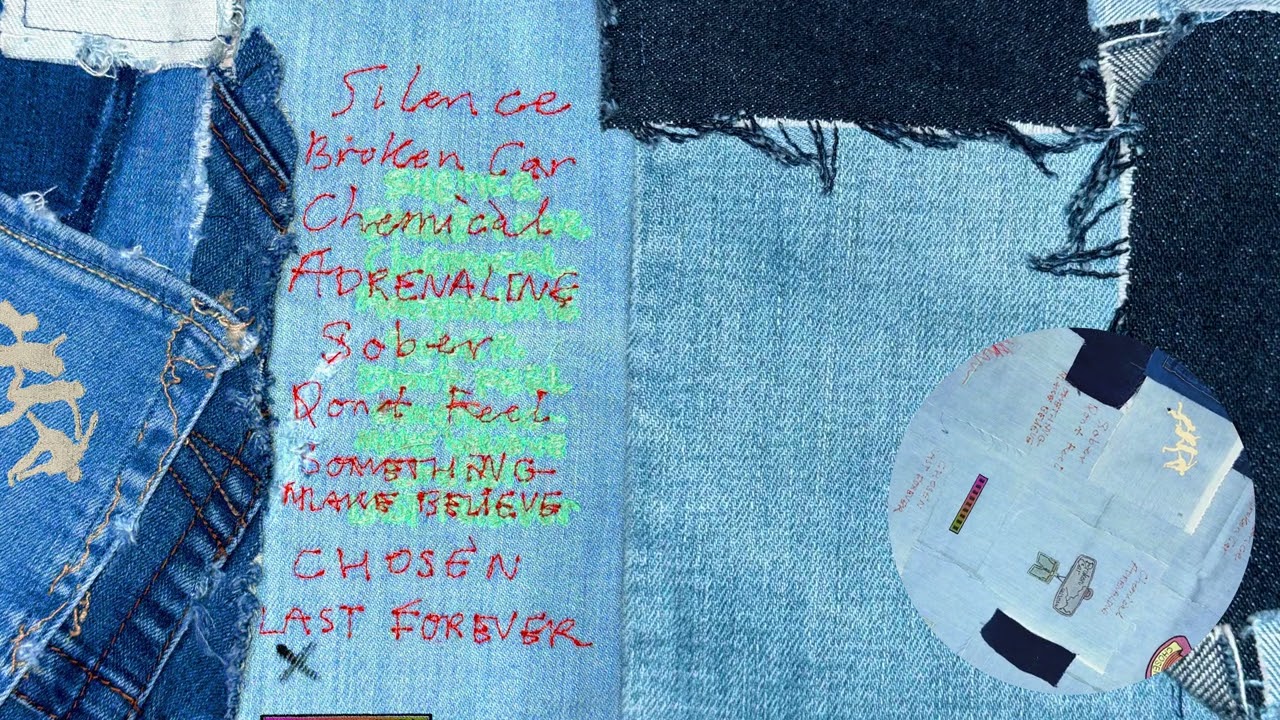 Silence
Broken Car
Chemical
ADRENALINE
Sober
Dont Feel
SOMETHING
MAKE BELIEVE
CHOSEN
LAST FOREVER